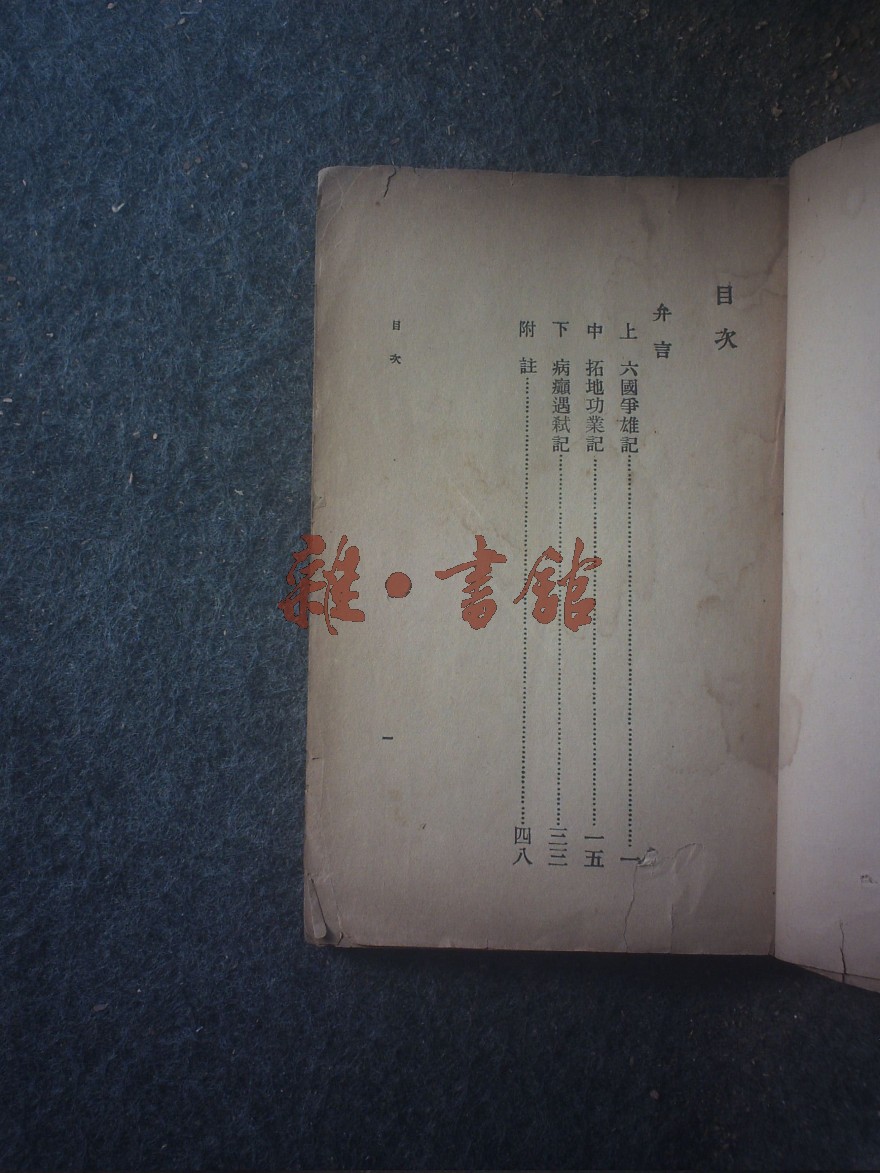 目次
弁言
上 六國爭雄記……一
中 拓地功業記……一五
下 病癲遇弒記……三三
附註……四八
目次
一
雜·書館